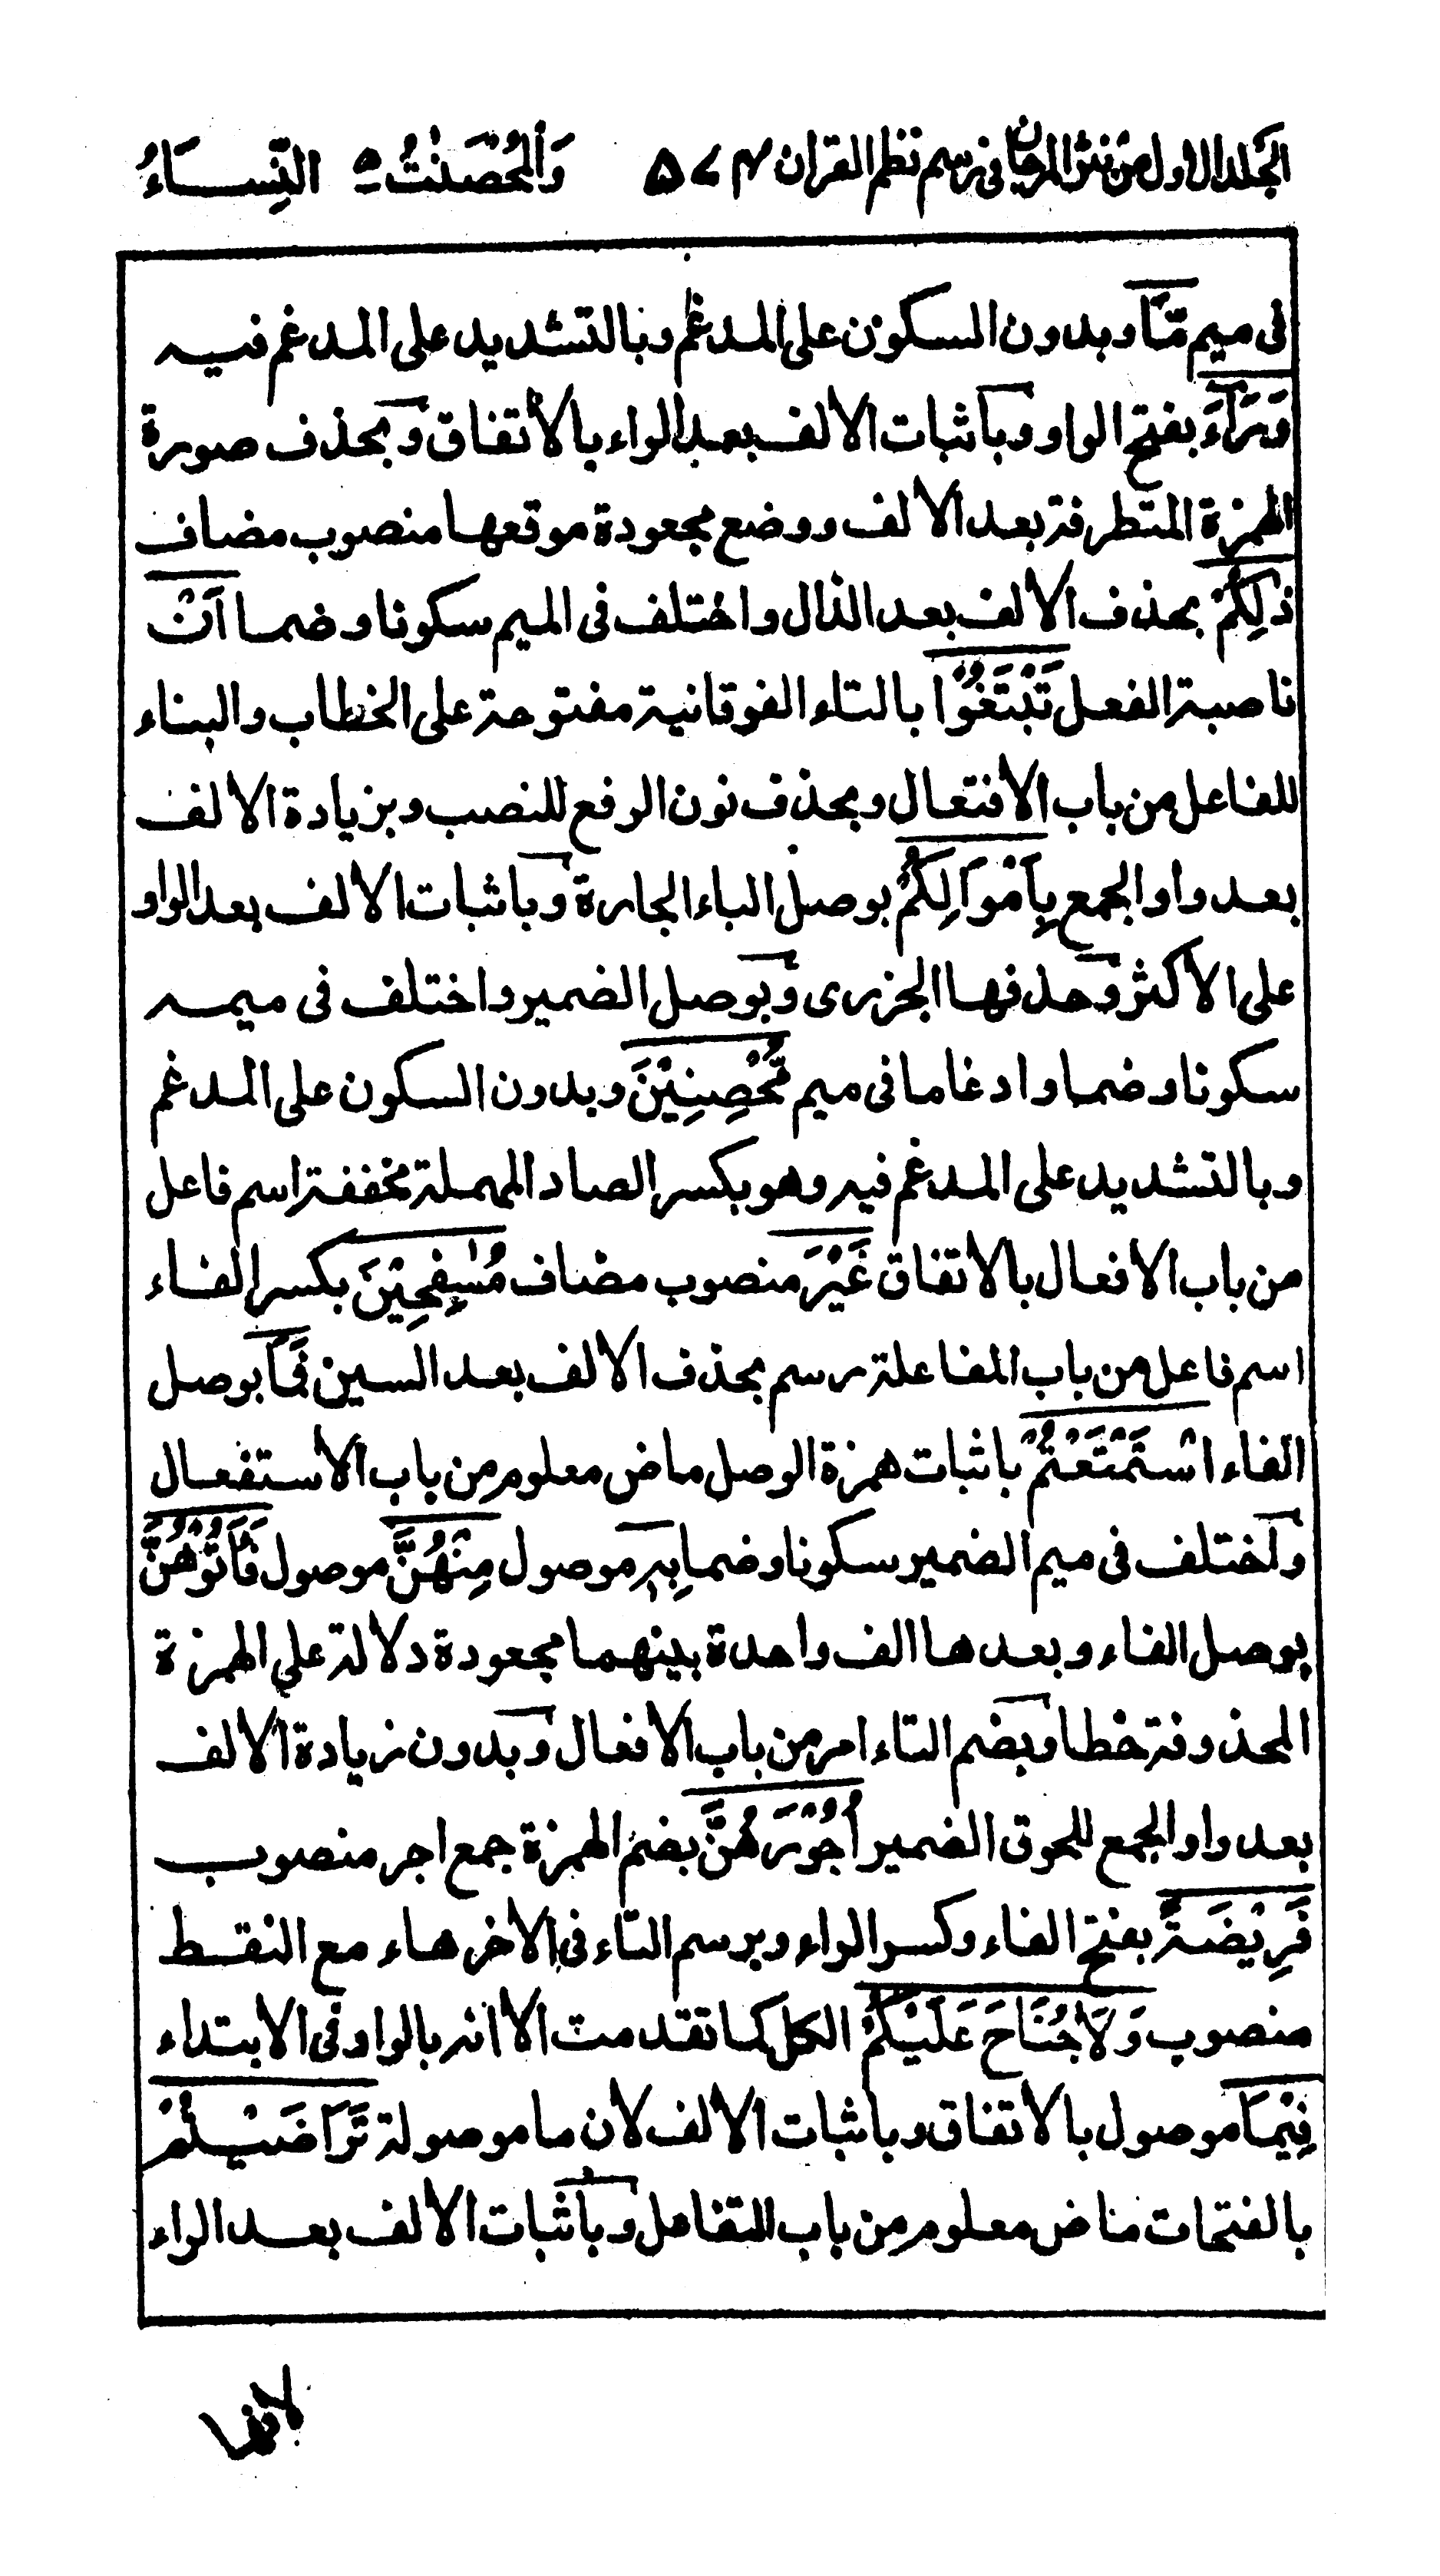 الجلد الاول من نثر المرجان فى رسم نظم القران ۵۷۴ وَالْمُحْصَنٰتُ ۵ النِّسَاءُ
فى ميم مَّا وبدون السكون على المدغم وبالتشديد على المدغم فيه
وَرَآءَ بفتح الواو وباثبات الالف بعد الراء بالاتفاق وبحذف صورة
الهمزة المتطرفة بعد الالف ووضع مجعودة موقعها منصوب مضاف
ذٰلِكُمْ بحذف الالف بعد الذال واختلف فى الميم سكونا وضما اَنْ
ناصبة الفعل تَبْتَغُوْا بالتاء الفوقانية مفتوحة على الخطاب والبناء
للفاعل من باب الافتعال وبحذف نون الرفع للنصب وبزيادة الالف
بعد واو الجمع بِاَمْوَالِكُمْ بوصل الباء الجارة وباثبات الالف بعد الواو
على الاكثر وحذفها الجزرى وبوصل الضمير واختلف فى ميمه
سكونا وضما وادغاما فى ميم مُّحْصِنِيْنَ وبدون السكون على المدغم
وبالتشديد على المدغم فيه وهو بكسر الصاد المهملة مخففة اسم فاعل
من باب الافعال بالاتفاق غَيْرَ منصوب مضاف مُسٰفِحِيْنَ بكسر الفاء
اسم فاعل من باب المفاعلة رسم بحذف الالف بعد السين فَمَا بوصل
الفاء اسْتَمْتَعْتُمْ باثبات همزة الوصل ماض معلوم من باب الاستفعال
واختلف فى ميم الضمير سكونا وضما بِهٖ موصول مِنْهُنَّ موصول فَاٰتُوْهُنَّ
بوصل الفاء وبعدها الف واحدة بينهما مجعودة دلالة على الهمزة
المحذوفة خطا وبضم التاء امر من باب الافعال وبدون زيادة الالف
بعد واو الجمع للحوق الضمير اُجُوْرَهُنَّ بضم الهمزة جمع اجر منصوب
فَرِيْضَةً بفتح الفاء وكسر الراء وبرسم التاء فى الاخر هاء مع النقط
منصوب وَلَا جُنَاحَ عَلَيْكُمْ الكل كما تقدمت الا انه بالواو فى الابتداء
فِيْمَا موصول بالاتفاق وباثبات الالف لان ما موصولة تَرَاضَيْتُمْ
بالفتحات ماض معلوم من باب التفاعل وباثبات الالف بعد الراء
لانها